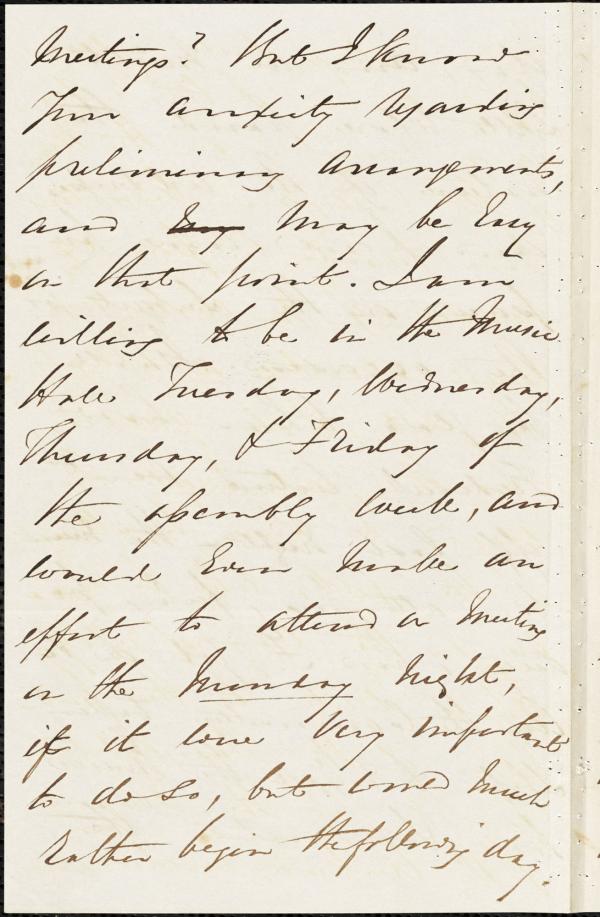 Meetings? But I know
your anxiety regarding
preliminary arrangements,
and may be easy
on that point. I am
willing to be in the Music
Hall Tuesday, Wednesday,
Thursday, & Friday of
the assembly week, and
would even make an
effort to attend a meeting
on the Monday night,
if it were very important
to do so, but would much
rather begin the following day.